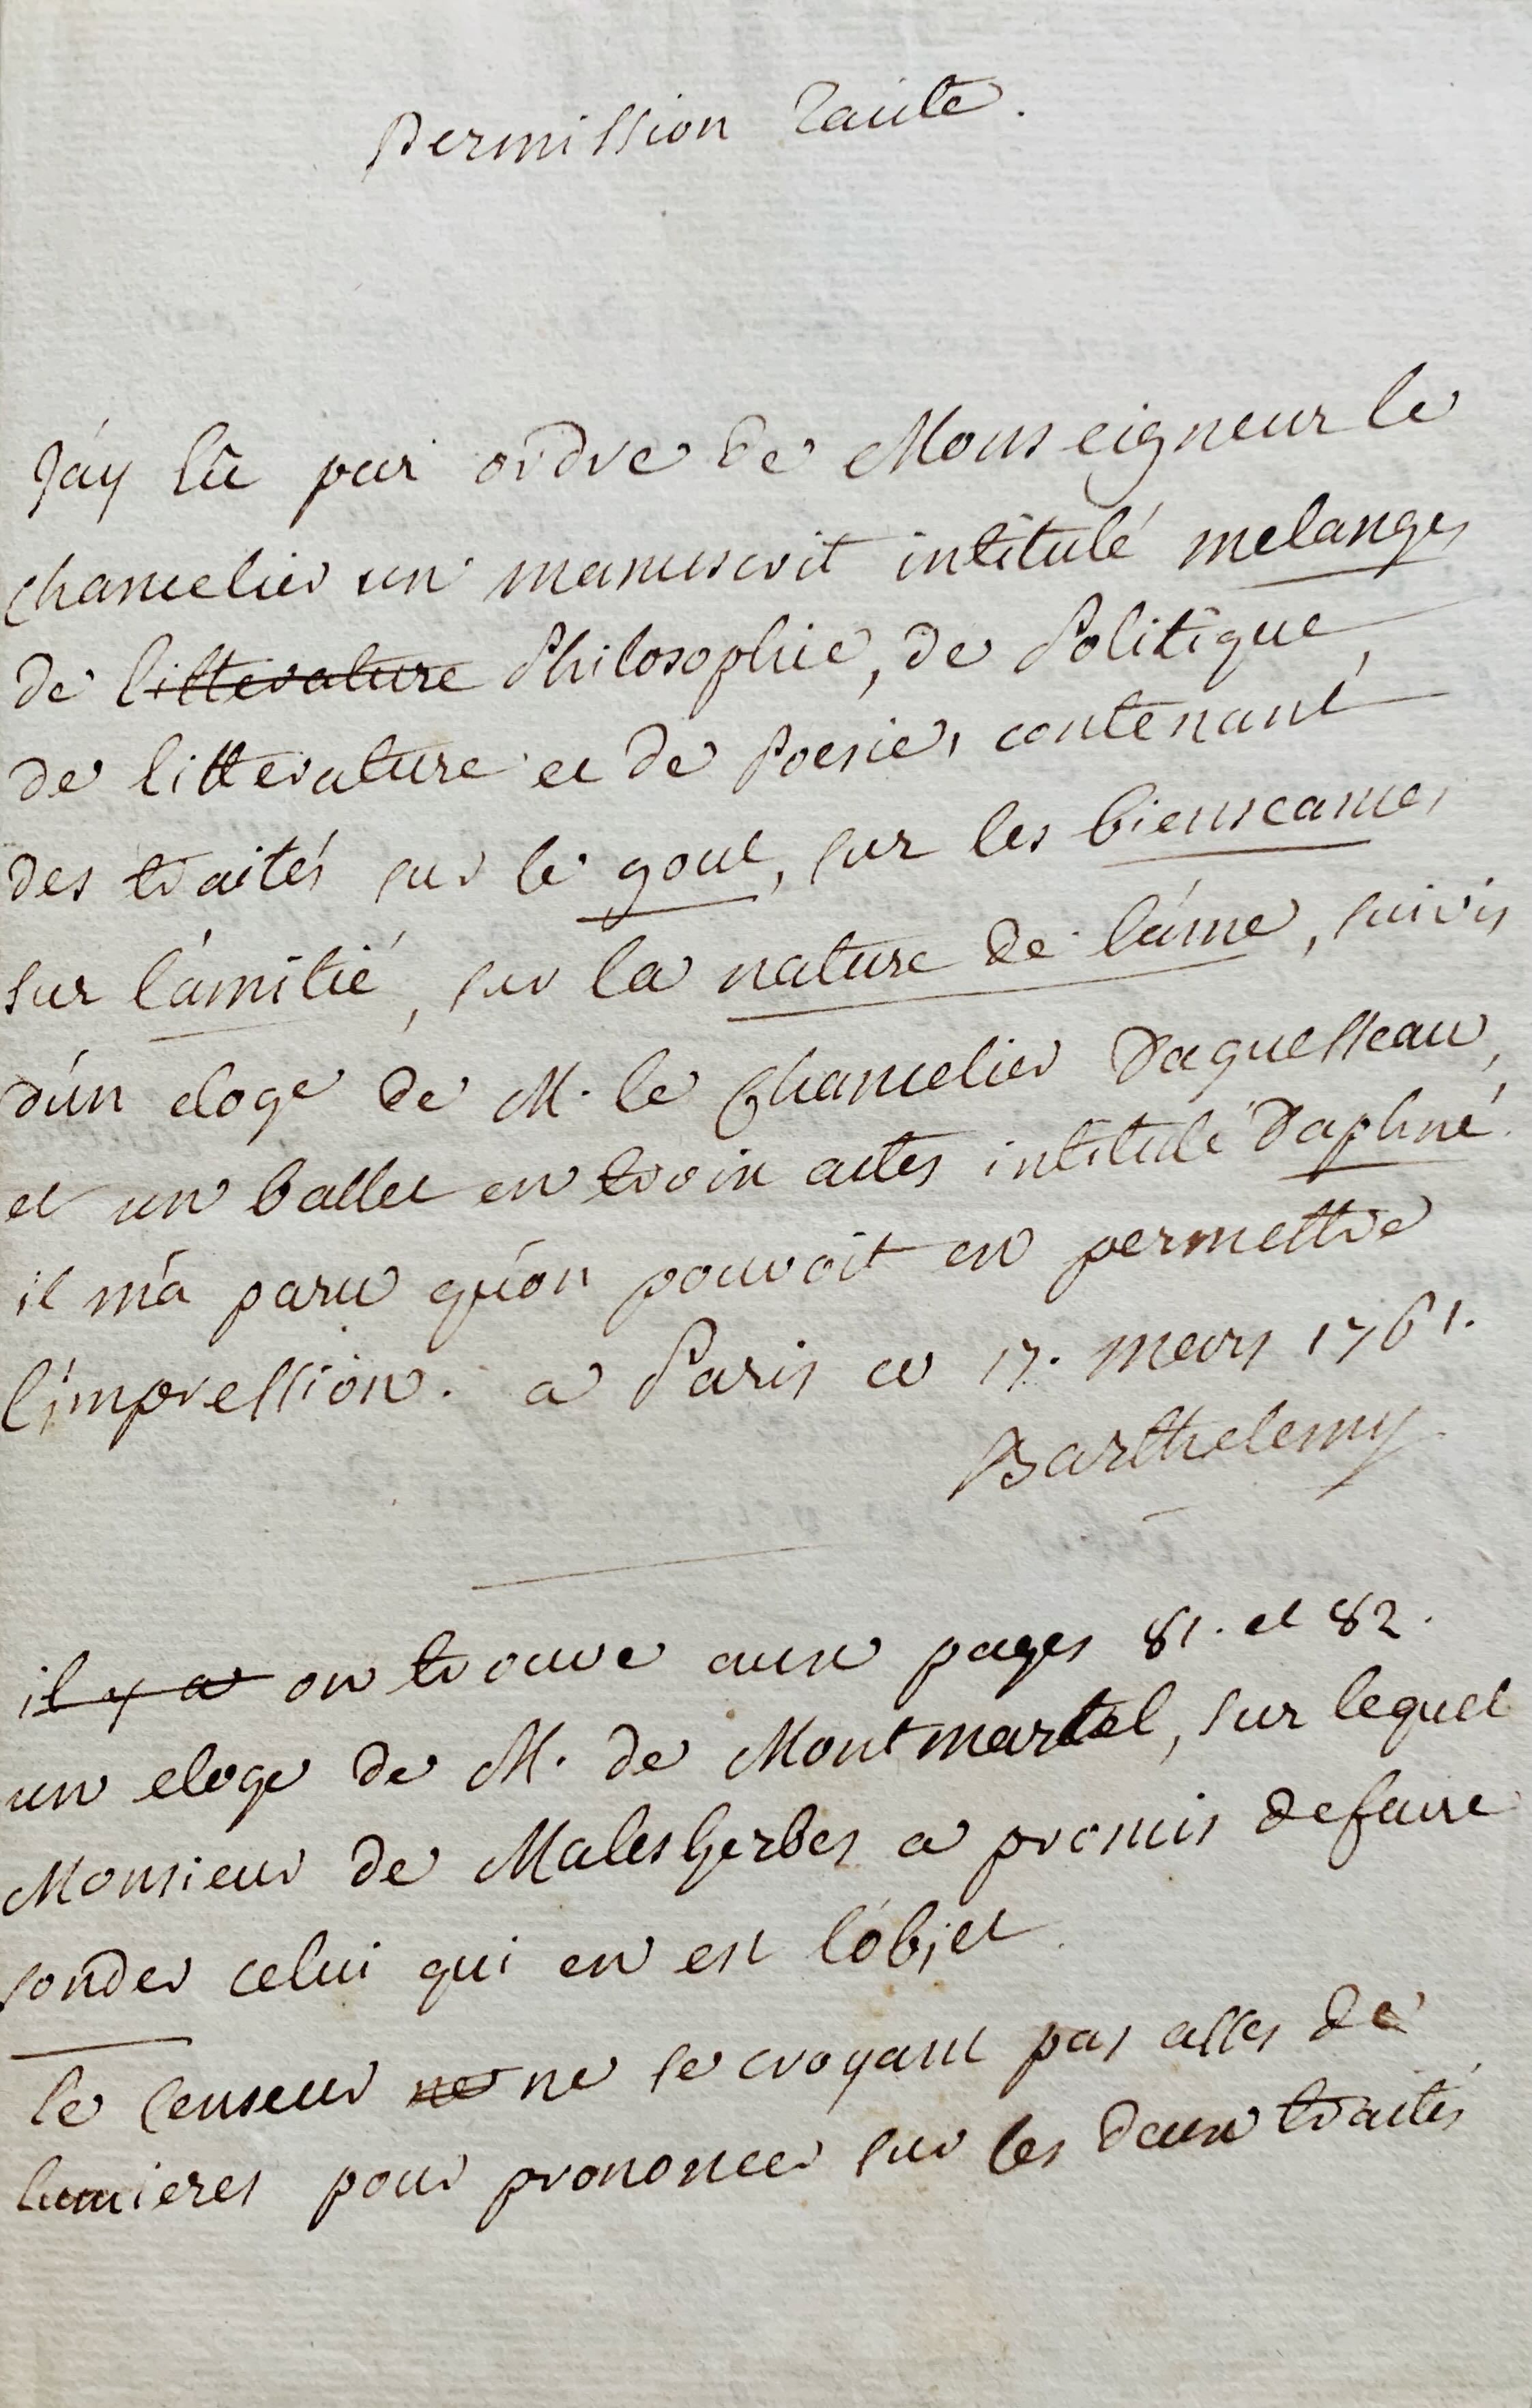 Permission Tacite.
J'ay lû par ordre de Monseigneur le
chancelier un manuscrit intitulé melanges
de litterature Philosophie, de Politique,
de litterature et de Poesie, contenant
des traités sur le gout, sur les bienseances
sur l'amitié, sur la nature de l'ame, suivis
d'un eloge de M. le Chancelier Daguesseau,
et un ballet en trois actes intitulé Daphné.
il m'a paru qu'on pouvoit en permettre
l'impression. a Paris ce 17. mars 1761.
Barthelemy
il y a on trouve aux pages 81. et 82.
un eloge de M. de Montmartel, sur lequel
Monsieur de Malesherbes a promis de faire
sonder celui qui en est l'objet
le Censeur ne ne se croyant pas asses de
lumieres pour prononcer sur les deux traités